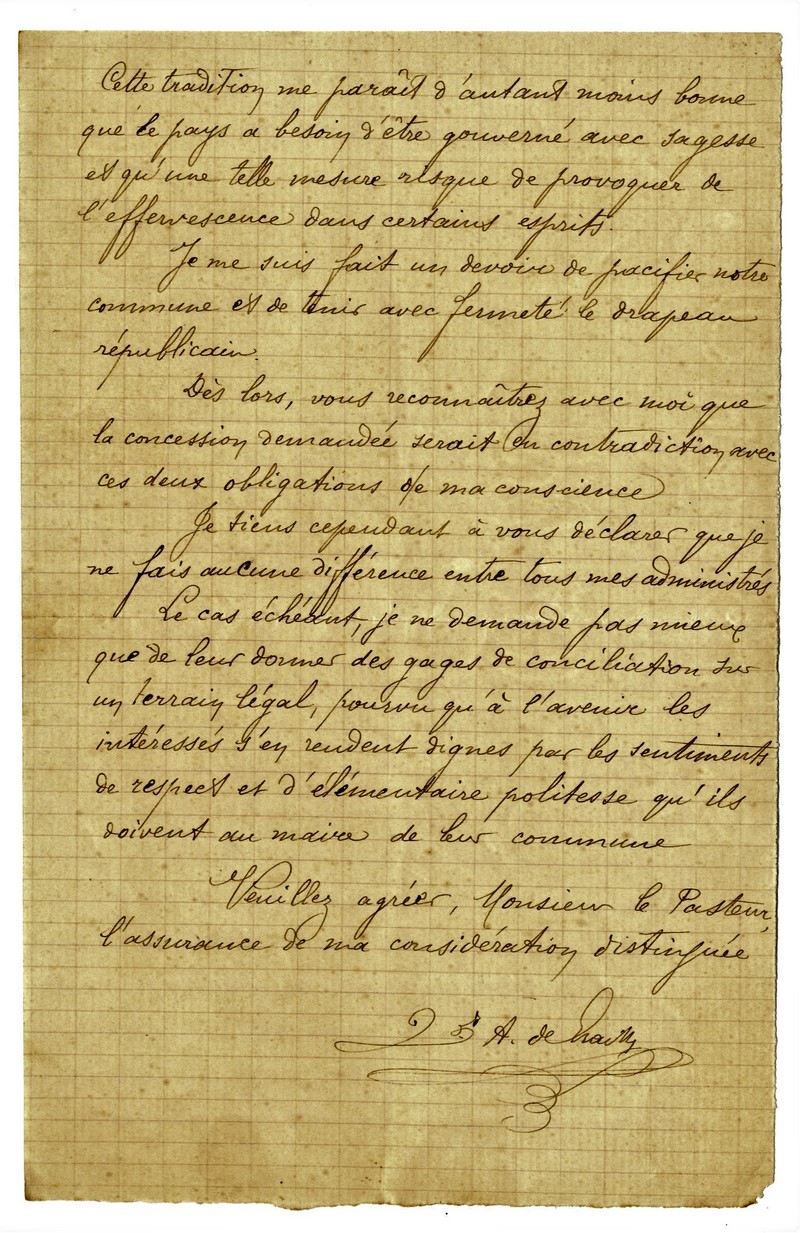 Cette tradition me paraît d'autant moins bonne
que le pays a besoin d'être gouverné avec sagesse
et qu'une telle mesure risque de provoquer de
l'effervescence dans certains esprits.
Je me suis fait un devoir de pacifier notre
commune et de tenir avec fermeté le drapeau
républicain.
Dès lors, vous reconnaîtrez avec moi que
la concession demandée serait en contradiction avec
ces deux obligations de ma conscience
Je tiens cependant à vous déclarer que je
ne fais aucune différence entre tous mes administrés
Le cas échéant, je ne demande pas mieux
que de leur donner des gages de conciliation sur
un terrain légal, pourvu qu'à l'avenir les
intéressés s'en rendent dignes par les sentiments
de respect et d'élémentaire politesse qu'ils
doivent au maire de leur commune
Veuillez agréer, Monsieur le Pasteur,
l'assurance de ma considération distinguée
A. de